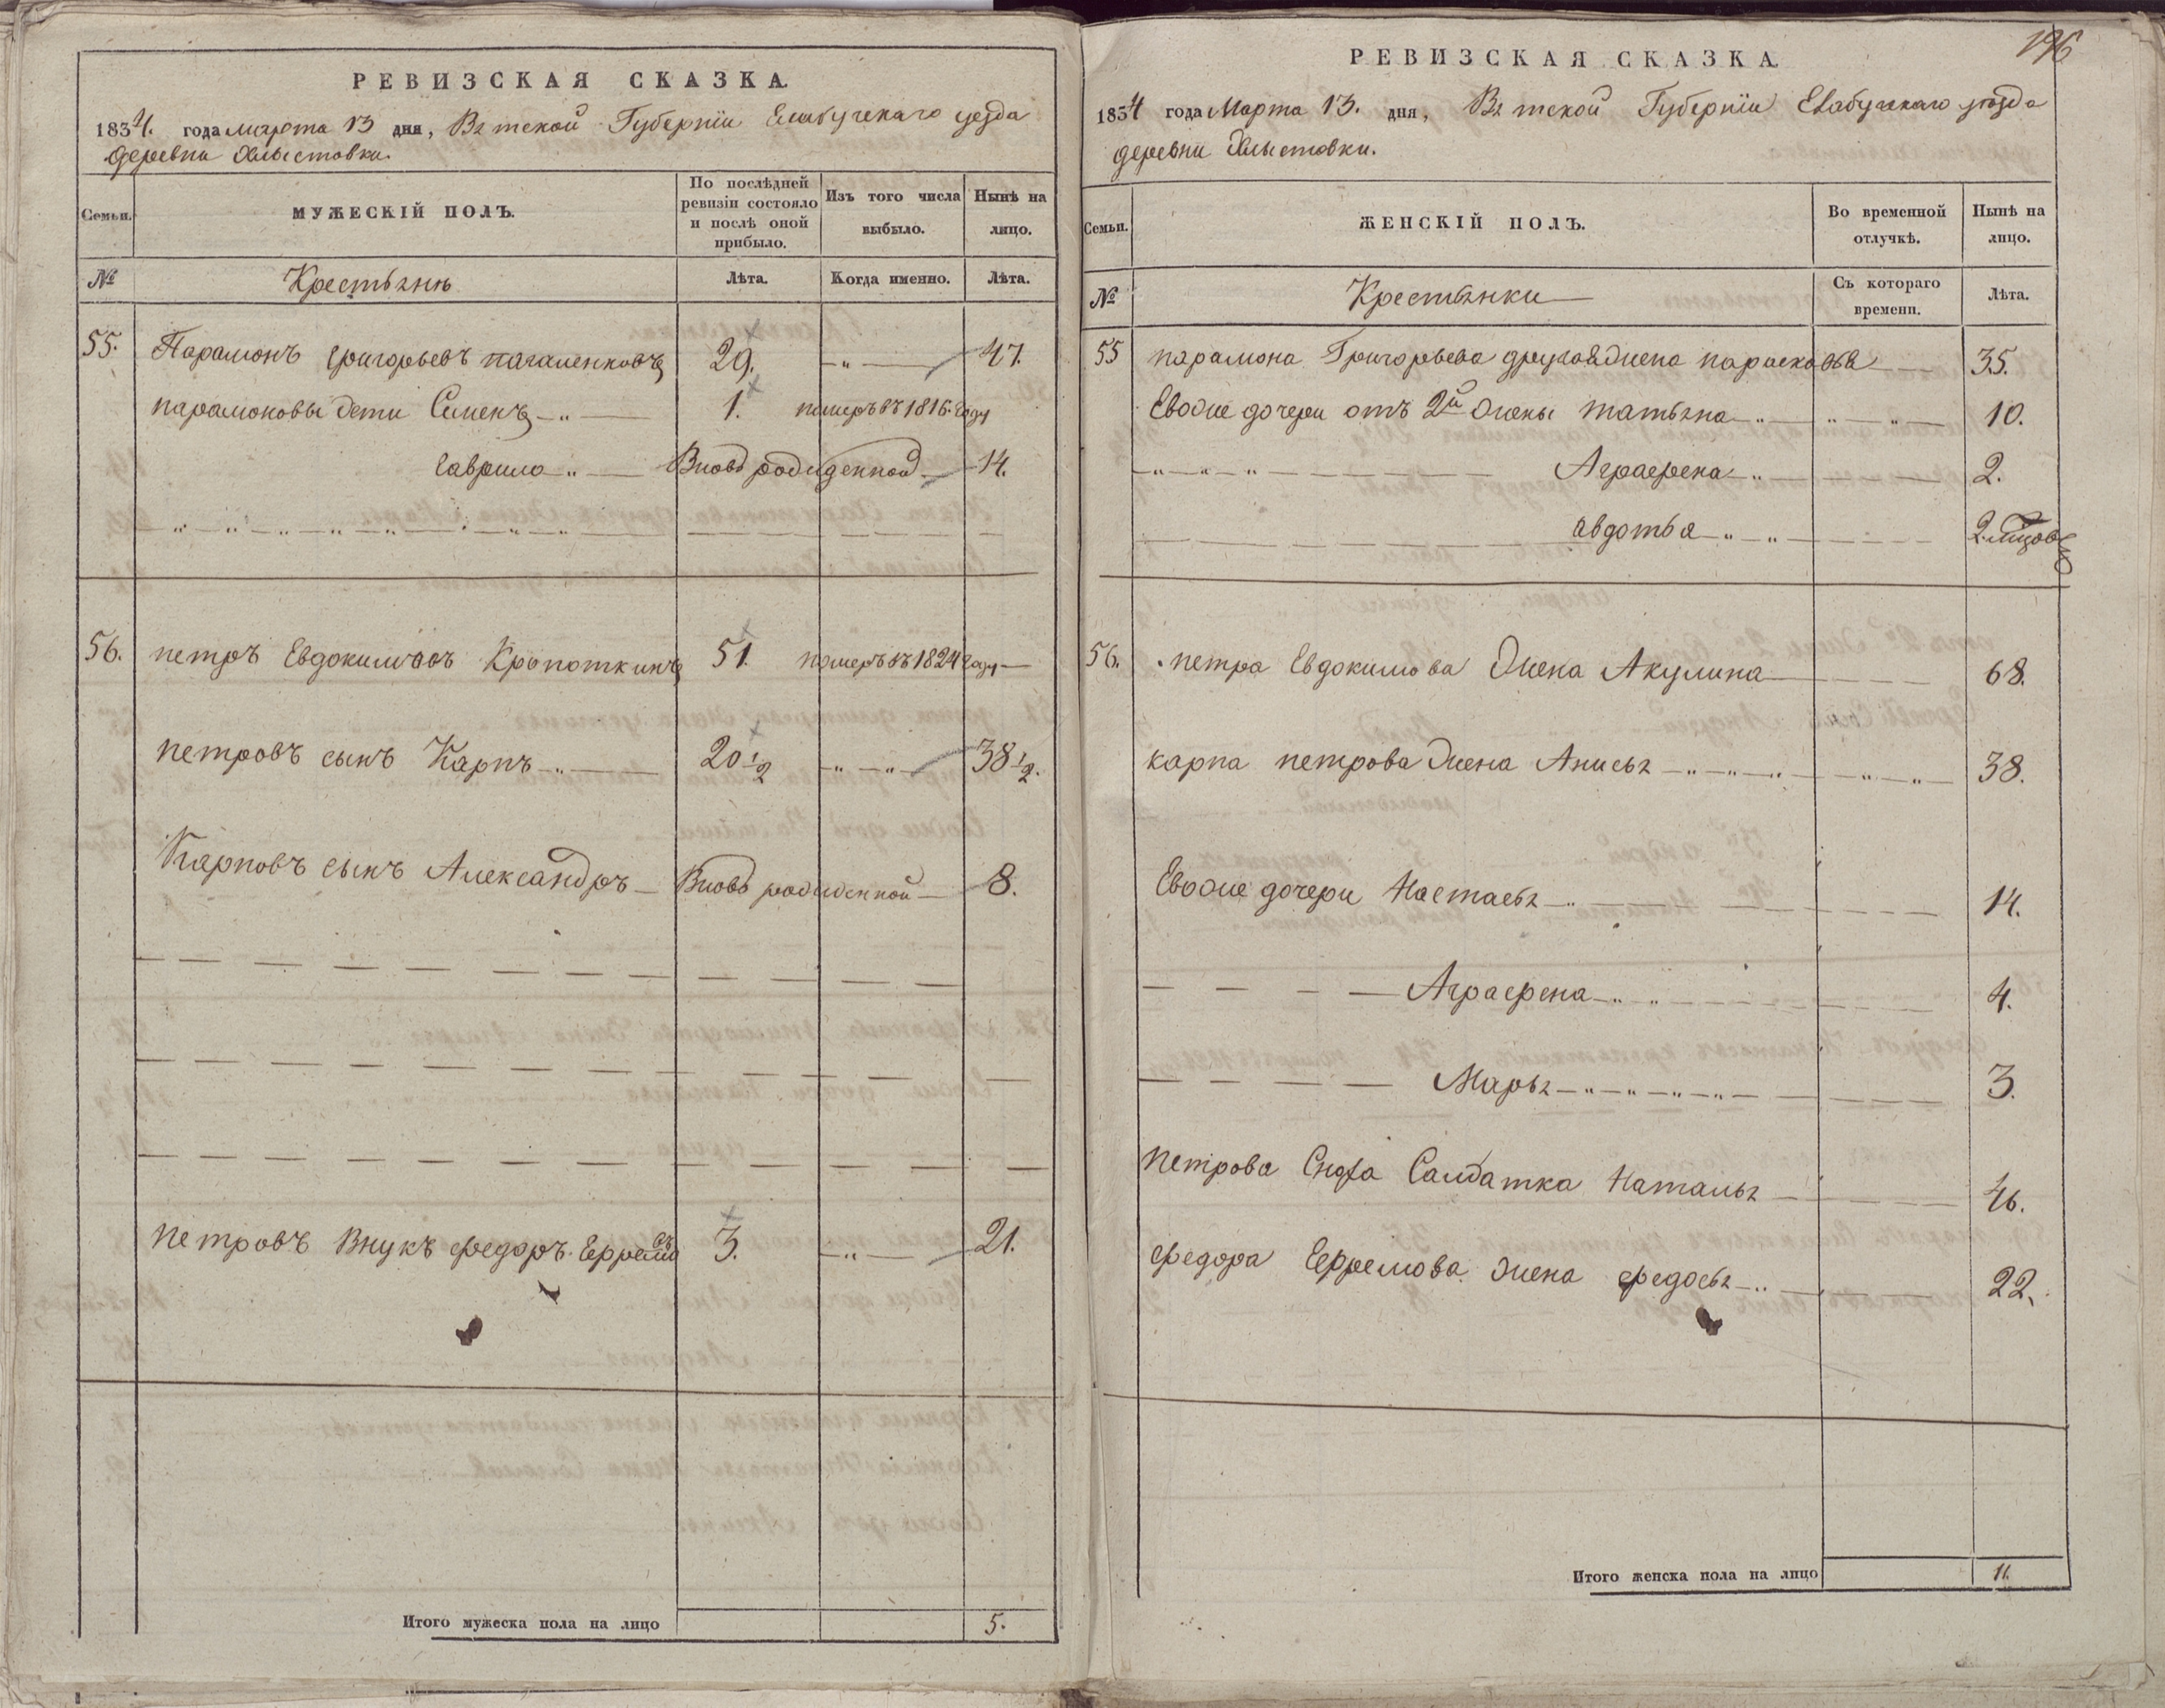 РЕВИЗСКАЯ СКАЗКА.
1834. года марта 13 дня, Вятской Губернiи Елабугскаго уезда
деревни Хлыстовки.
Семьи.
МУЖЕСКIЙ ПОЛЪ.
По послѣдней ревизiи состояло и послѣ оной прибыло.
Изъ того числа выбыло.
Нынѣ на лицо.
№
Крестьянѣ
Лѣта.
Когда именно.
Лѣта.
55. Парамонъ Григорьевъ 29. — „ — 47.
парамоновы дети Семенъ — „ — 1. померъ въ 1816. году
Гаврило „ — Вновь рожденной — 14.
56. петръ Евдокимовъ Кропоткинъ 51. померъ въ 1824 году —
петровъ сынъ Карпъ — „ — 20 1/2 — „ — „ — 38 1/2.
Карповъ сынъ Александръ — Вновь рожденной — 8.
петровъ Внукъ Федоръ Ефремовъ 3. — „ — 21.
Итого мужеска пола на лицо 5.
196
РЕВИЗСКАЯ СКАЗКА.
1834 года Марта 13. дня, Вятской Губернiи Елабугскаго уѣзда
деревни Хлыстовки.
Семьи.
ЖЕНСКIЙ ПОЛЪ.
Во временной отлучкѣ.
Нынѣ на лицо.
№
Крестьянки —
Съ котораго времени.
Лѣта.
55 парамона Григорьева другая жена парасковья — 35.
Евоже дочери отъ 2й жены татьяна — „ — „ — „ — 10.
— „ — „ — „ — Аграфена — „ — 2.
авдотья — „ — „ — 2.
56. петра Евдокимова жена Акулина — 68.
карпа петрова жена Анисья — „ — „ — „ — „ — „ — 38.
Евоже дочери Настасья — „ — 14.
— Аграфена — „ „ — 4.
— Марья — „ — „ — „ — „ — 3.
петрова Сноха Салдатка Наталья — 46.
Федора Ефремова жена Федосья — „ — 22.
Итого женска пола на лицо 11.